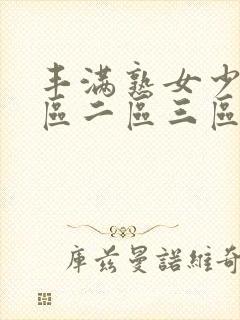 丰满熟女少
區二區三區
库兹曼諾維奇